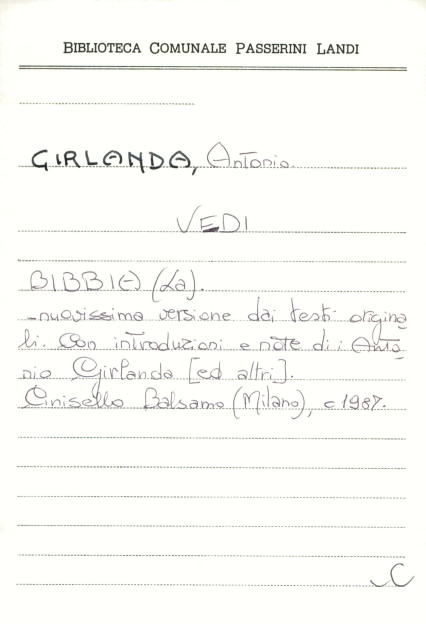 BIBLIOTECA COMUNALE PASSERINI LANDI
GIRLANDA, Antonio.
VEDI
BIBBIA (La).
-nuovissima versione dai testi origina
li. Con introduzioni e note di: Anto
nio Girlanda [ed altri].
Cinisello Balsamo (Milano), c1987.